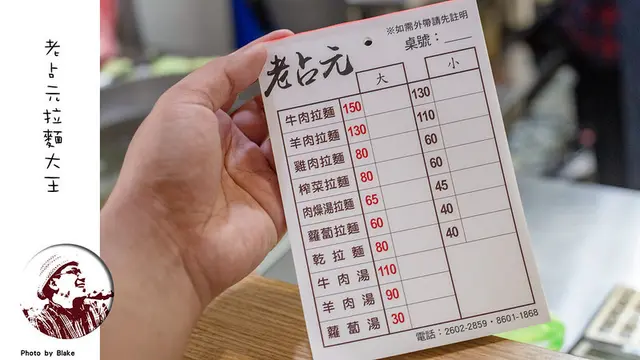 老占元拉麵大王
Photo by Blake
※如需外帶請先註明
桌號：
老占元
大 小
牛肉拉麵 150 130
羊肉拉麵 130 110
雞肉拉麵 80 60
榨菜拉麵 80 60
肉燥湯拉麵 65 45
蘿蔔拉麵 60 40
乾拉麵 80 40
牛肉湯 110
羊肉湯 90
蘿蔔湯 30
電話：2602-2859・8601-1868